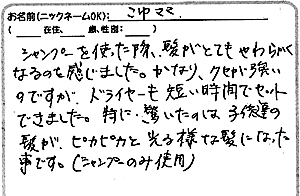 お名前(ニックネームOK): こゆママ
( 在住、 歳、性別: )
シャンプーを使った際、髪がとてもやわらかく
なるのを感じました。かなり、クセが強い
のですが、ドライヤーも短い時間でセット
できました。特に、驚いたのは子供達の
髪が、ピカピカと光る様な髪になった
事です。(シャンプーのみ使用)